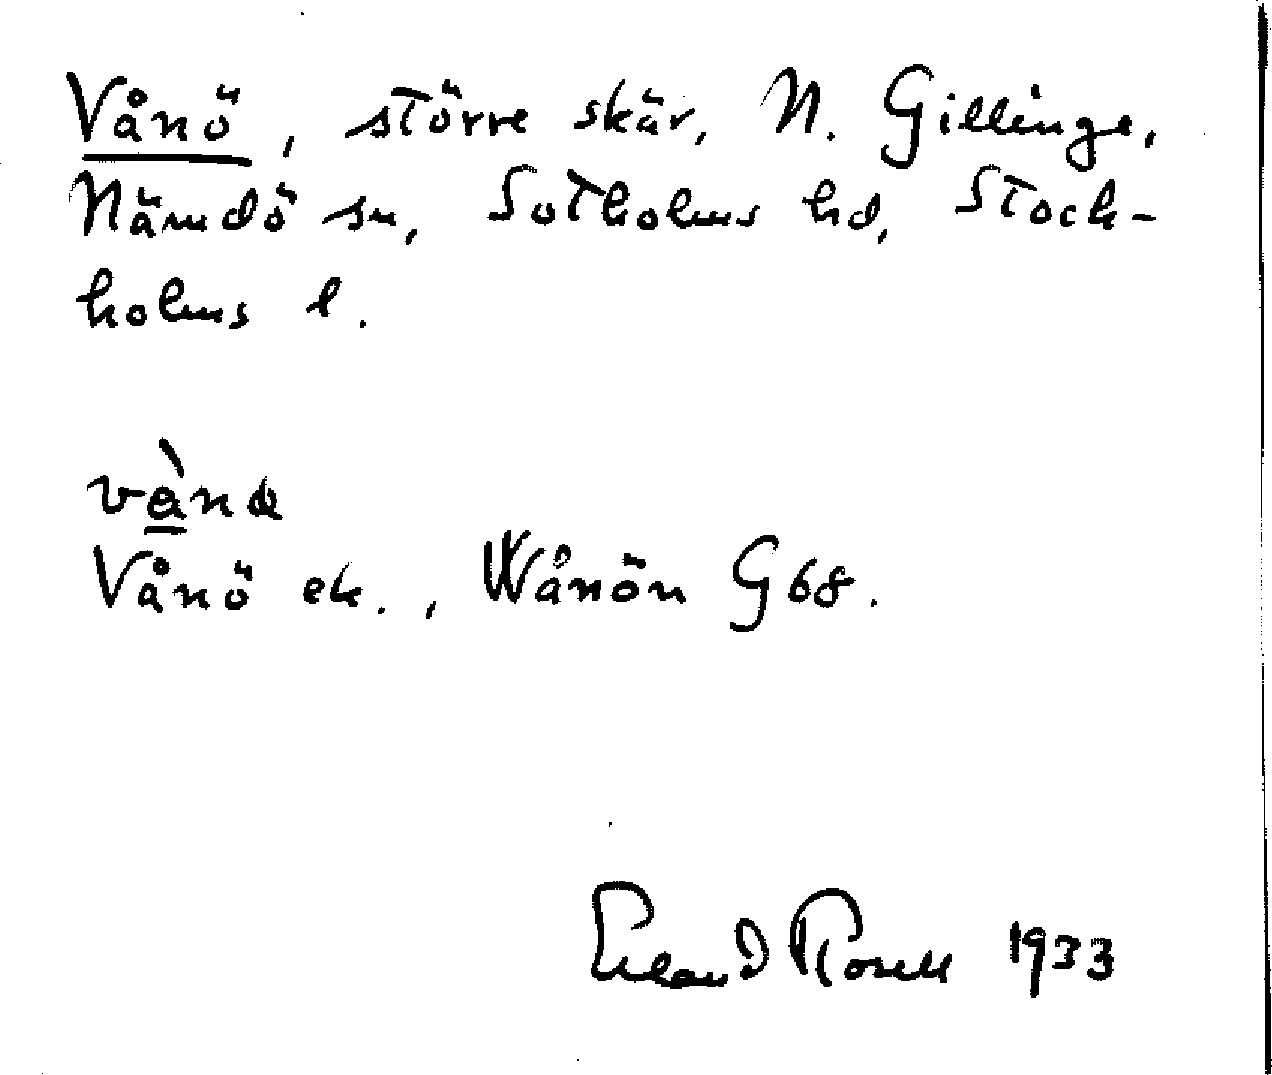 Vånö, större skär, N. Gillinge,
Nämdö sn, Sotholms hd, Stock-
holms l.
Vånö ek., Wånön G68.
Erland Rosell 1933